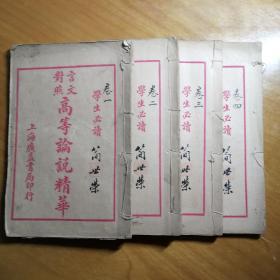 卷一
學生必讀
簡世榮
言文
對照
高等論說精華
上海廣益書局印行
卷二
學生必讀
簡世榮
卷三
學生必讀
簡世榮
卷四
學生必讀
簡世榮